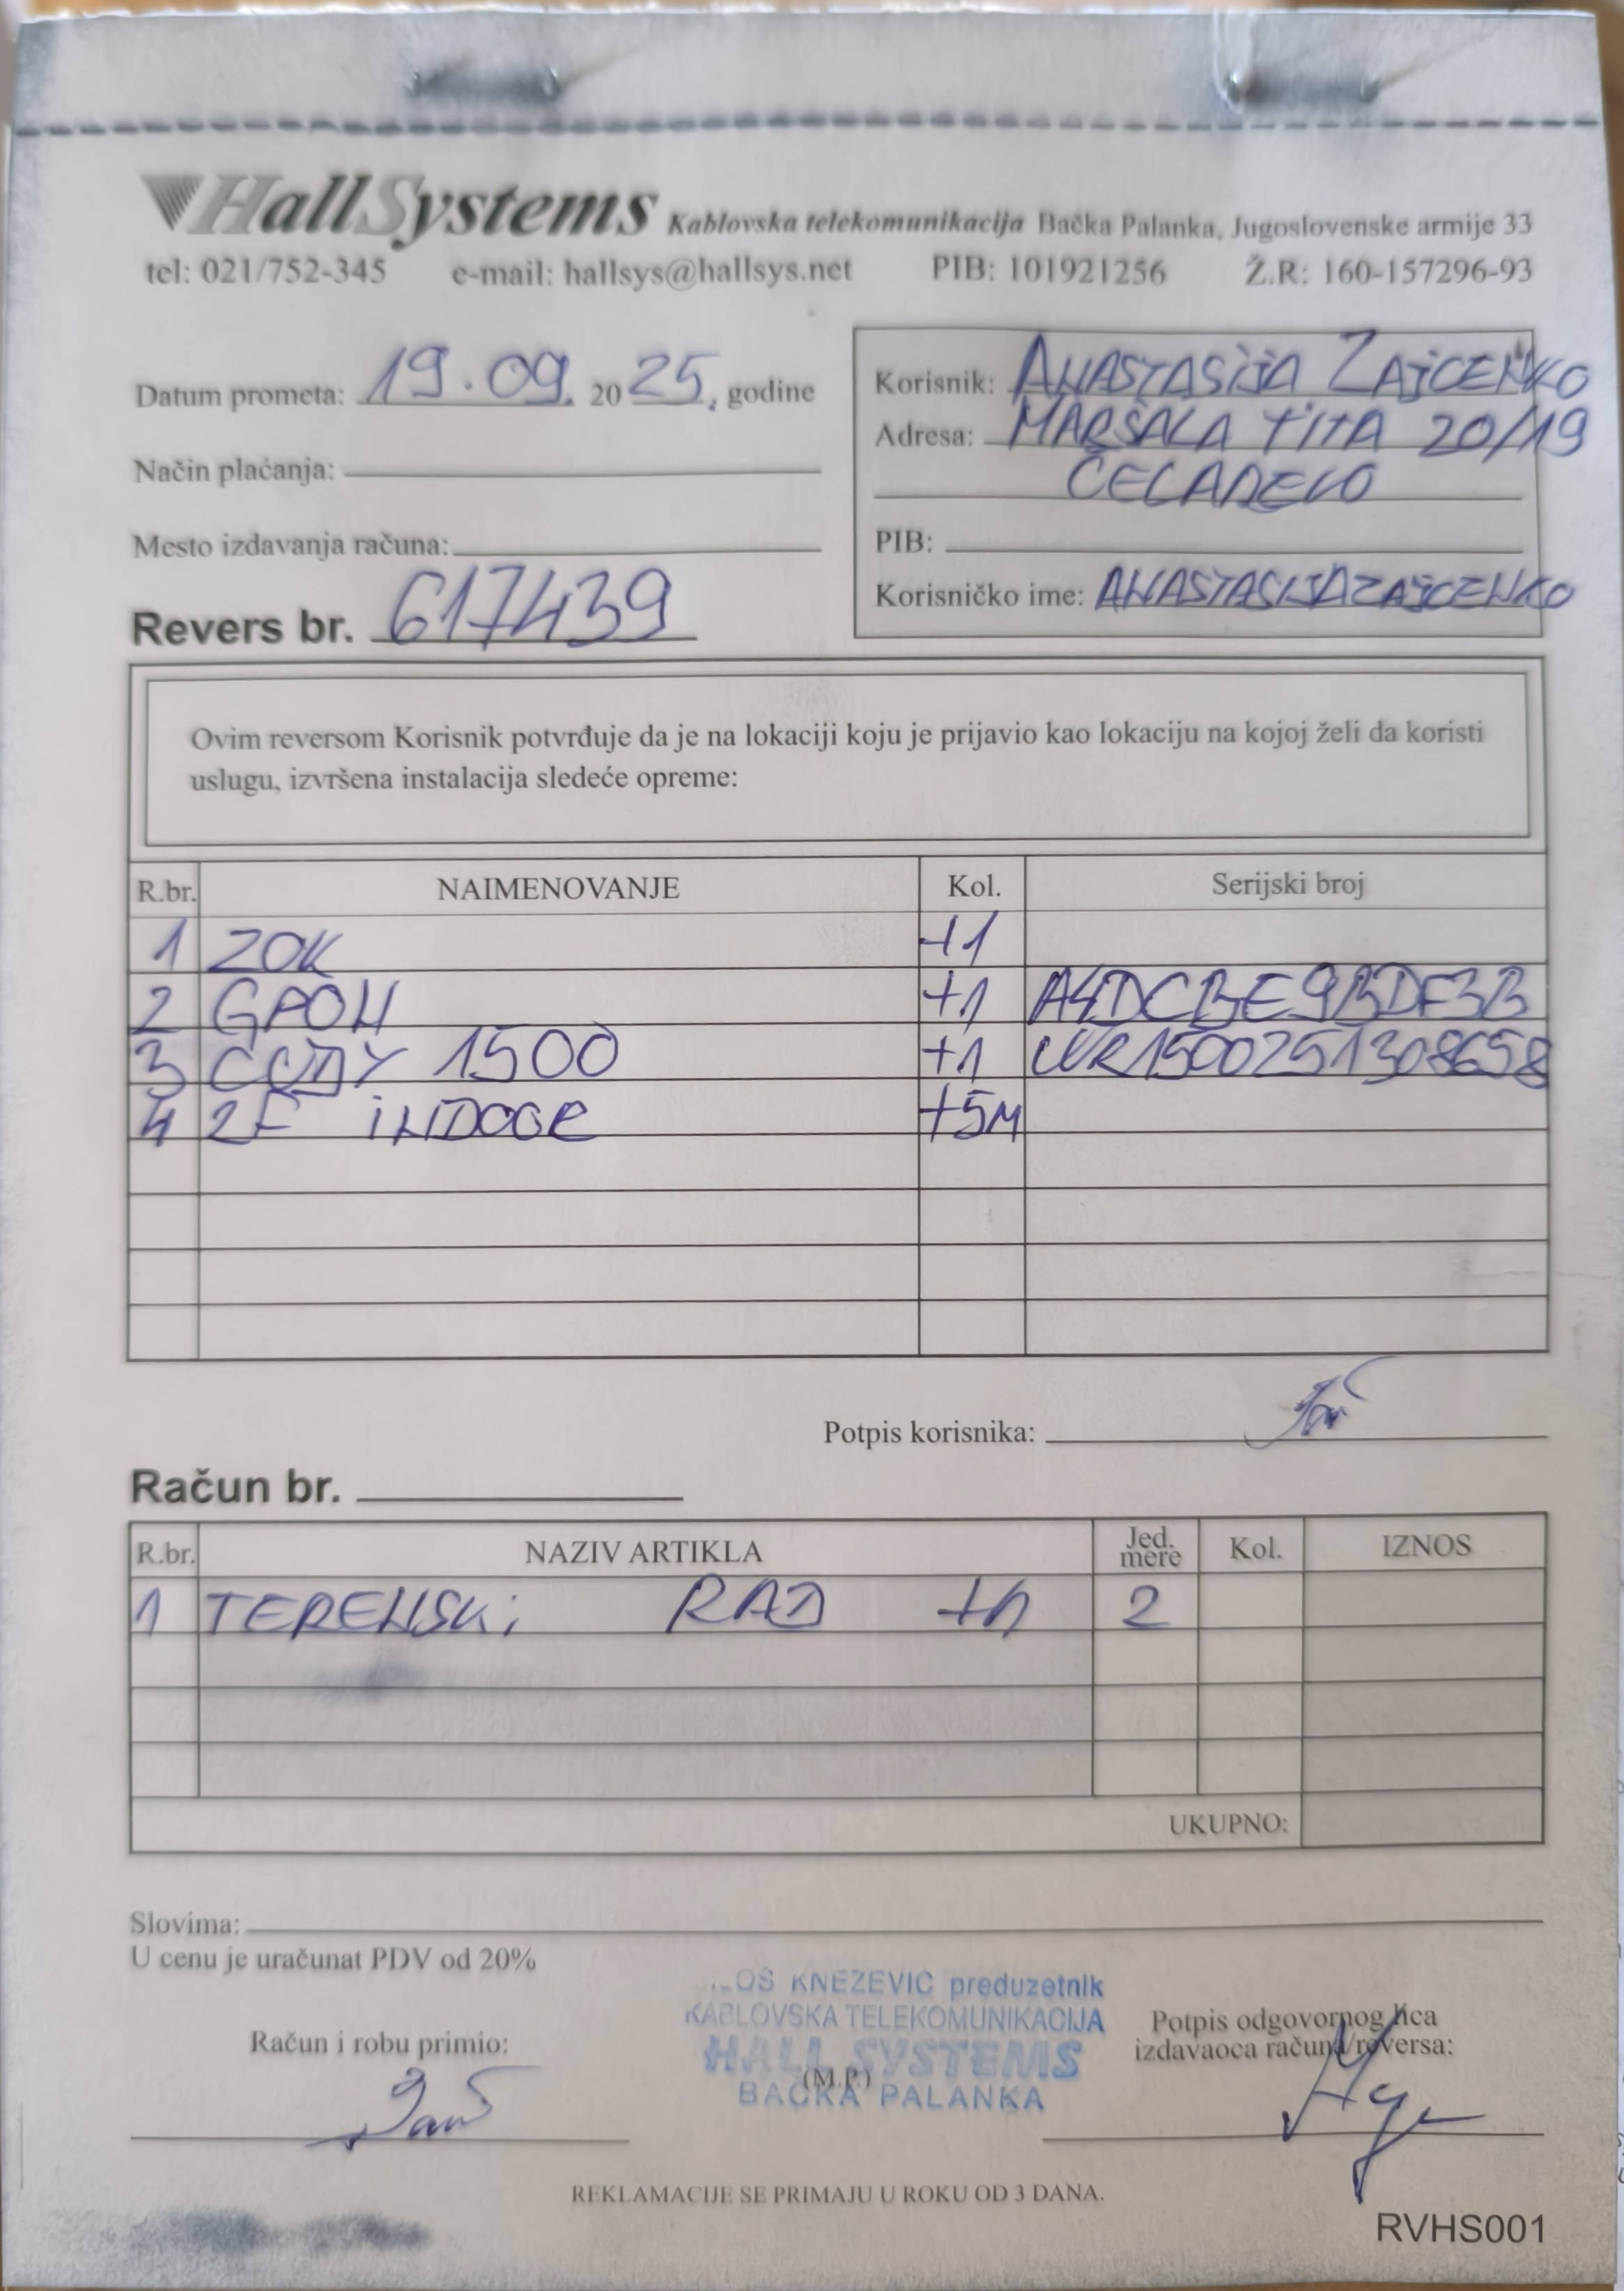 HallSystems Kablovska telekomunikacija Bačka Palanka, Jugoslovenske armije 33
tel: 021/752-345 e-mail: hallsys@hallsys.net PIB: 101921256 Ž.R: 160-157296-93
Datum prometa: 19.09. 2025. godine
Način plaćanja:
Mesto izdavanja računa:
Revers br. 617439
Korisnik: ANASTASIJA ZAJCENKO
Adresa: MARŠALA TITA 20/19
ČELAREVO
PIB:
Korisničko ime: ANASTASIJAZAJCENKO
Ovim reversom Korisnik potvrđuje da je na lokaciji koju je prijavio kao lokaciju na kojoj želi da koristi
uslugu, izvršena instalacija sledeće opreme:
R.br. NAIMENOVANJE Kol. Serijski broj
1 ZOK +1
2 GPON +1 A4DCBE9BDF3B
3 CUDY 1500 +1 WR1500251308658
4 2F INDOOR +5M
Potpis korisnika:
Račun br.
R.br. NAZIV ARTIKLA Jed. mere Kol. IZNOS
1 TERENSKI RAD +1 2
UKUPNO:
Slovima:
U cenu je uračunat PDV od 20%
Račun i robu primio:
OŠ KNEZEVIC preduzetnik
KABLOVSKA TELEKOMUNIKACIJA
HALL SYSTEMS
(M.P.)
BAČKA PALANKA
Potpis odgovornog lica
izdavaoca računa/reversa:
REKLAMACIJE SE PRIMAJU U ROKU OD 3 DANA.
RVHS001